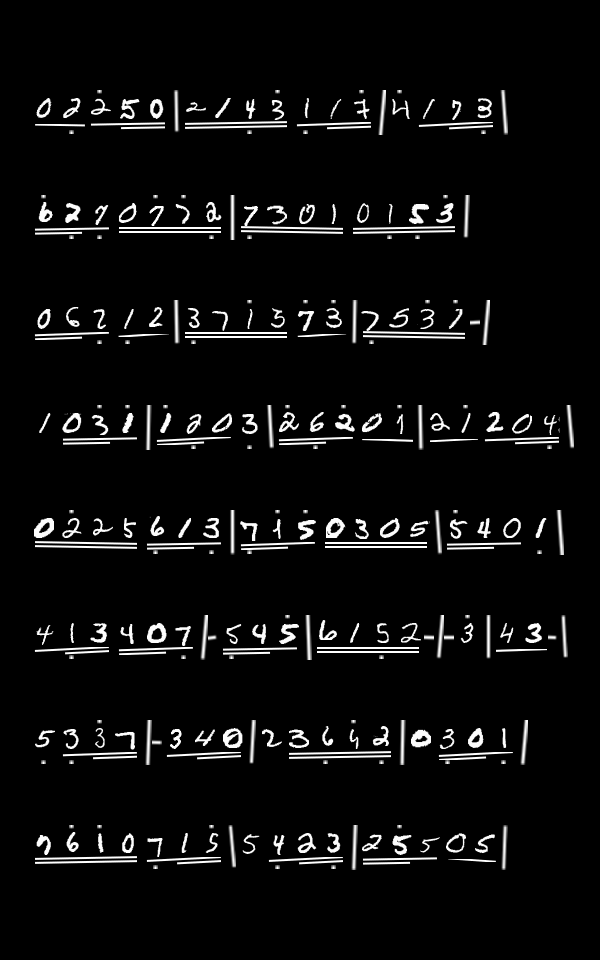 02250|2143117|4173
6270772|73010153
06212|371573|7537-|
1031|1203|26201|21204
0225613|7150305|5401
413407|-545|6152-|-3|43-|
5337|-340|23642|0301
7610715|5423|25505